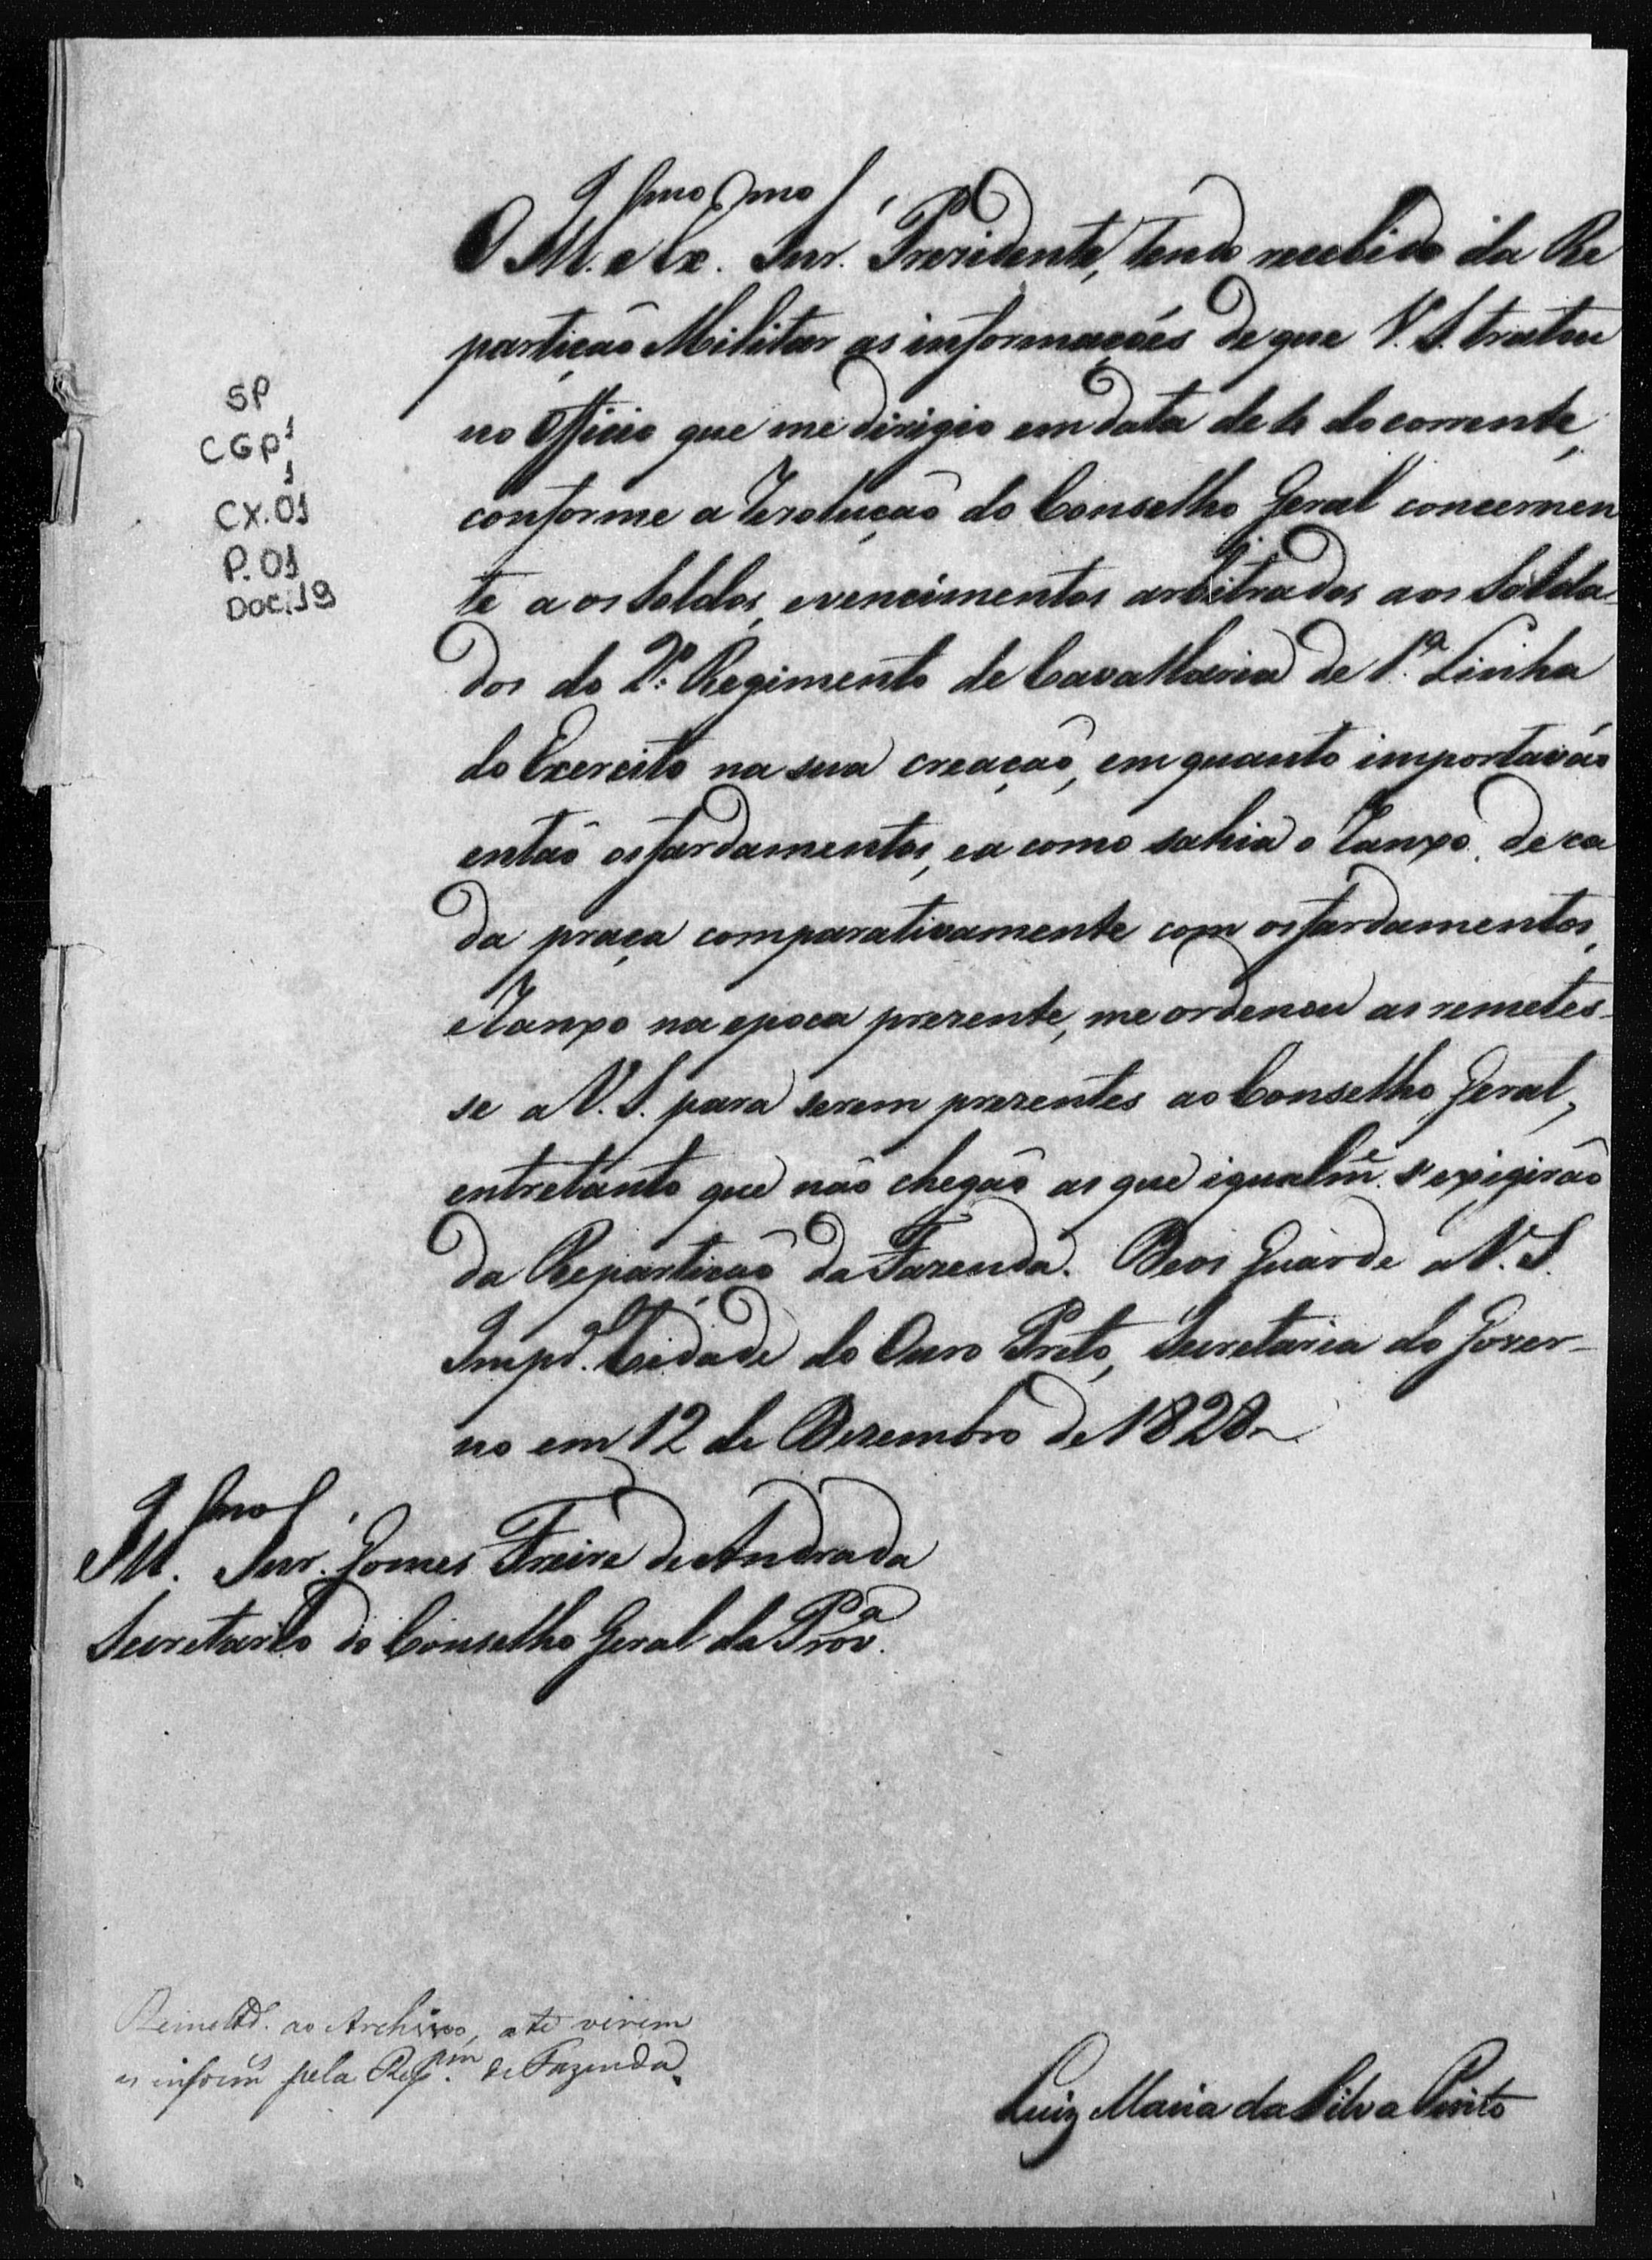 O Illmo. e Exmo. Snr. Prezidente, tendo recebido da Re
partição Militar as informações de que V. S. tratou
no Officio que me dirigio em data de 6 do corrente,
conforme a rezolução do Conselho Geral concernen
te a os Soldos, e vencimentos arbitrados aos Solda-
dos do 2º Regimento de Cavallaria de 1ª Linha
do Exercito na sua creação, em quanto importavão
então os fardamentos, e a como sahia o ranxo de ca
da praça comparativamente com os fardamentos,
e ranxo na epoca prezente, me ordenou as remetes-
se a V. S. para serem prezentes ao Conselho Geral,
entretanto que não chegão as que igualmᵉ. s'exigirão
da Repartição da Fazenda. Deos Guarde a V. S.
Impᵃˡ. Cidade do Ouro Preto, Secretaria do Gover-
no em 12 de Dezembro de 1828
Illmo. Snr. Gomes Freire de Andrada
Secretario do Conselho Geral da Provᵃ.
SP
CGP 1
1
CX.01
P.01
Doc.19
ao Archivo, até virem
as inform pela Repᵃᵐ. de Fazenda
Luiz Maria da Silva Pinto